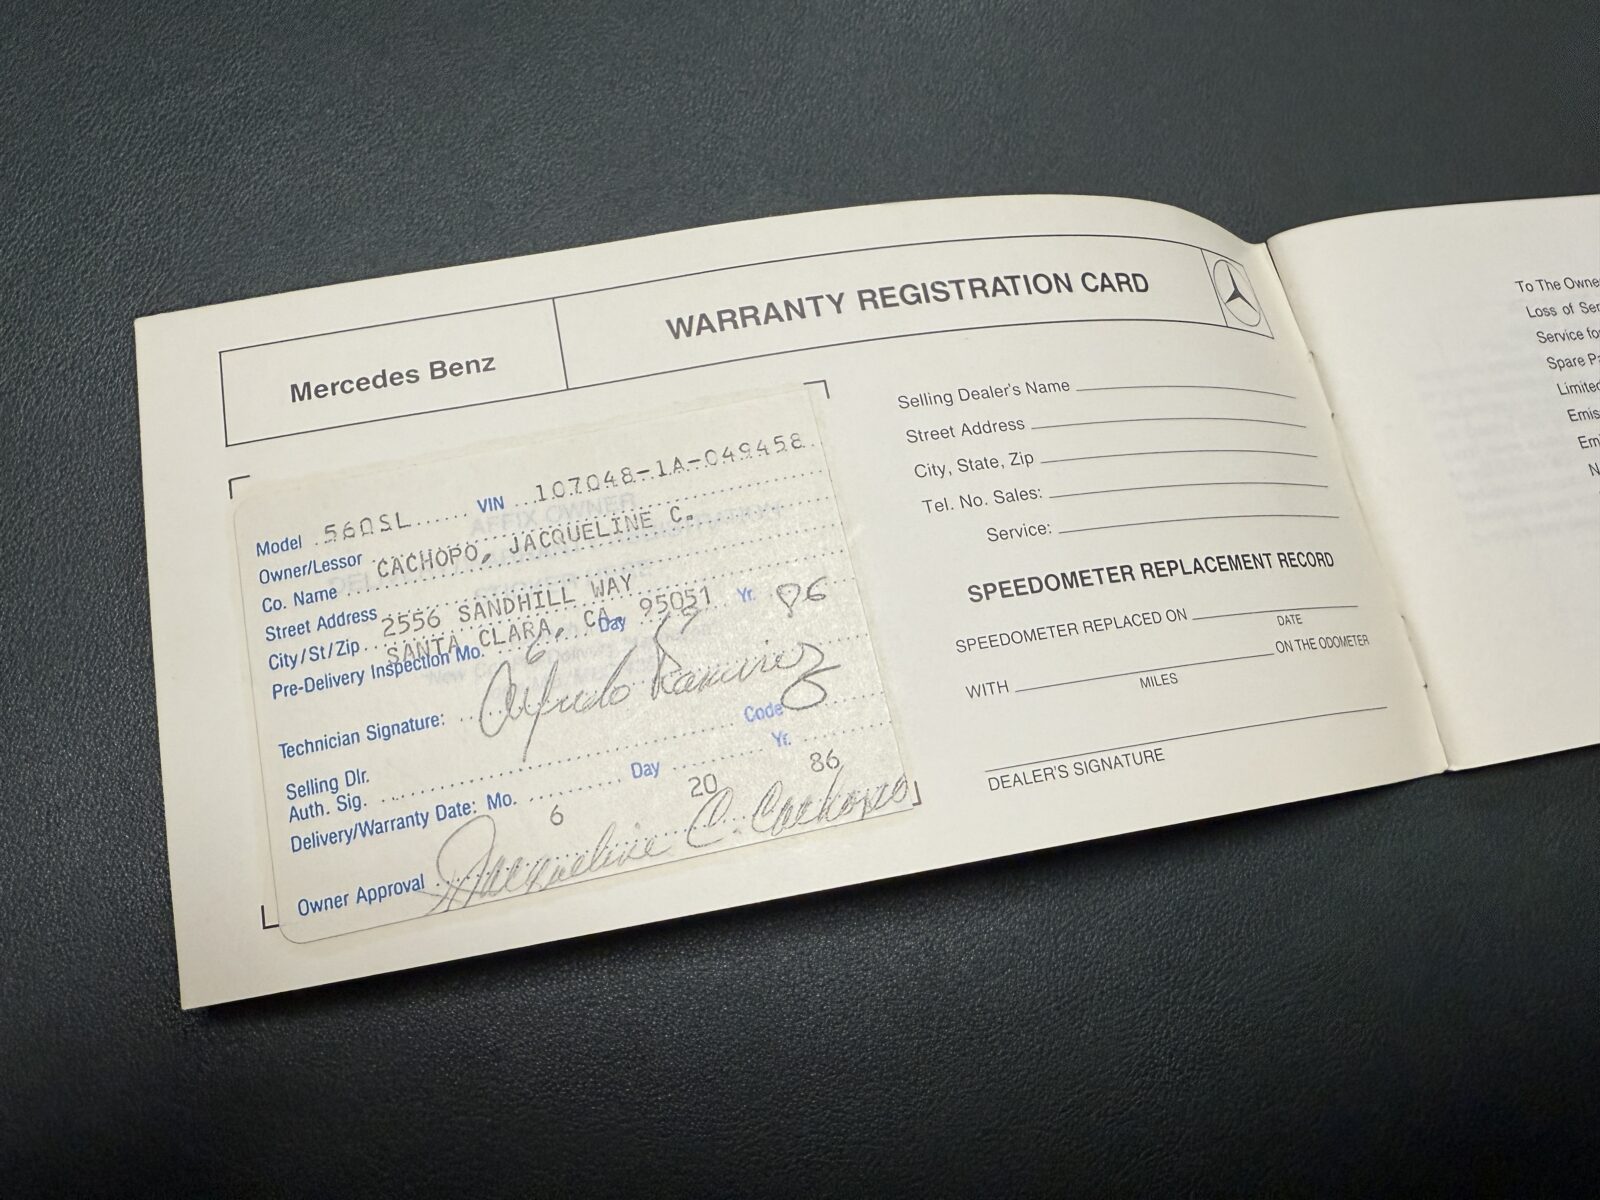 Mercedes Benz
WARRANTY REGISTRATION CARD
Model 560SL VIN 107048-1A-049458
Owner/Lessor CACHOPO, JACQUELINE C.
Co. Name
Street Address 2556 SANDHILL WAY
City/St/Zip SANTA CLARA, CA. 95051
Pre-Delivery Inspection Mo. 6 Day Yr. 86
Technician Signature: Alfredo Ramirez
Selling Dlr.
Auth. Sig. Code
Delivery/Warranty Date: Mo. 6 Day 20 Yr. 86
Owner Approval Jacqueline C. Cachopo
AFFIX OWNER
Selling Dealer's Name
Street Address
City, State, Zip
Tel. No. Sales:
Service:
SPEEDOMETER REPLACEMENT RECORD
SPEEDOMETER REPLACED ON
DATE
WITH ON THE ODOMETER
MILES
DEALER'S SIGNATURE
To The Owne
Loss of Ser
Service fo
Spare Pa
Limited
Emis
Emi
N